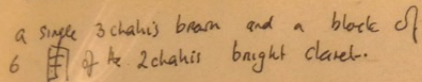 a single 3 chahis brown and a block of
6 of the 2 chahis bright claret.